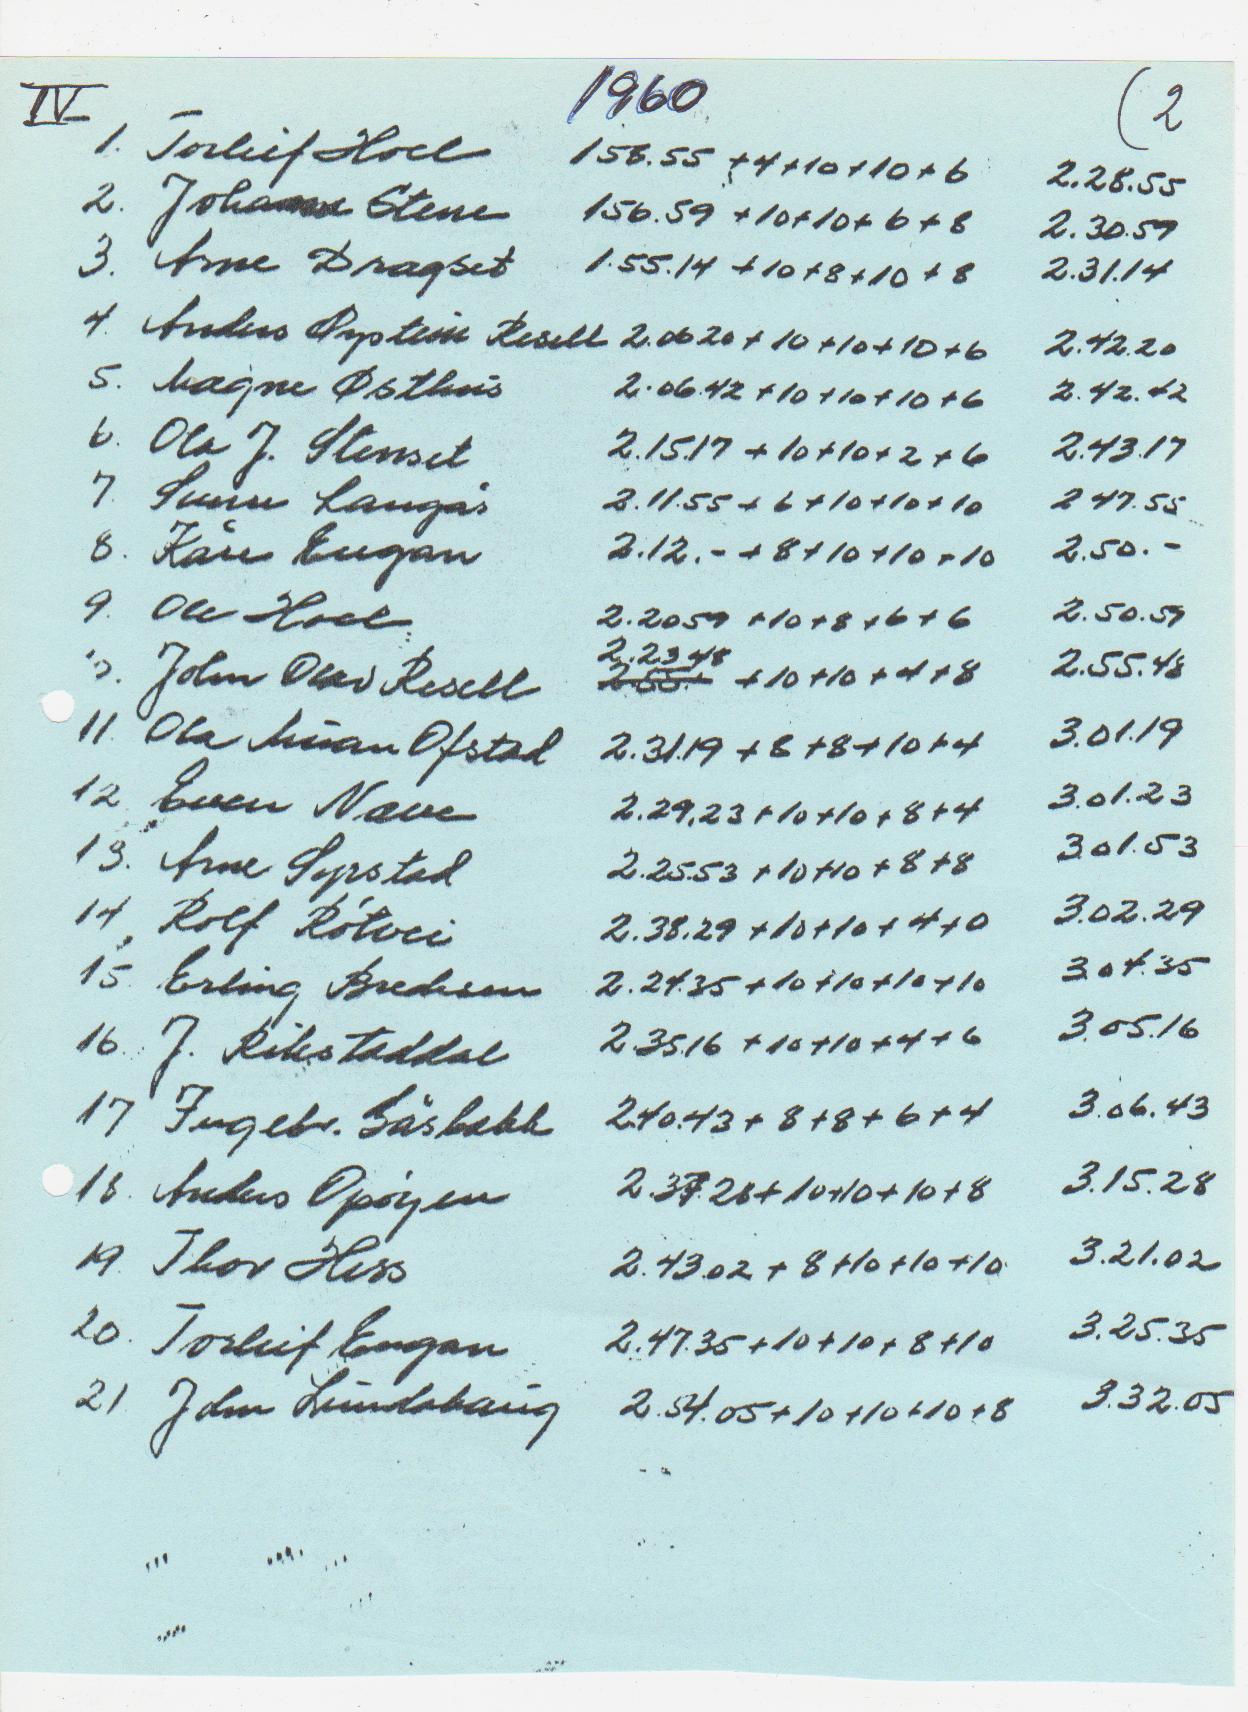 IV 1960 (2
1. Torleif Hoel 158.55 +4+10+10+6 2.28.55
2. Johannes Stene 156.59 +10+10+6+8 2.30.59
3. Arne Dragset 1.55.14 +10+8+10+8 2.31.14
4. Anders Øystein Resell 2.06 20+10+10+10+6 2.42.20
5. Magne Østhus 2.06.42+10+10+10+6 2.42.42
6. Ola J. Stenset 2.15.17 +10+10+2+6 2.43.17
7. Langås 2.11.55+6+10+10+10 2 47.55
8. Kåre Engan 2.12.-+8+10+10+10 2.50.-
9. Ole Hoel 2.2059 +10+8+6+6 2.50.59
2.23 48
John Olav Resell 2.55. +10+10+4+8 2.55.48
11. Ola Ofstad 2.31.19 +8+8+10+4 3.01.19
12 Even Nave 2.29.23+10+10+8+4 3.01.23
13. Arne Syrstad 2.25.53 +10+10+8+8 3.01.53
14. Rolf Rötvei 2.38.29+10+10+4+0 3.02.29
15. Erling 2.24.35+10+10+10+10 3.04.35
16. J. 2.35.16 +10+10+4+6 3.05.16
17 Ingebr. Gåsbakk 2.40.43+8+8+6+4 3.06.43
18. Anders Opøyen 2.37.28+10+10+10+8 3.15.28
19. Thor Hess 2.43.02+8+10+10+10 3.21.02
20. Torleif Engan 2.47.35+10+10+8+10 3.25.35
21 John 2.54.05+10+10+10+8 3.32.05